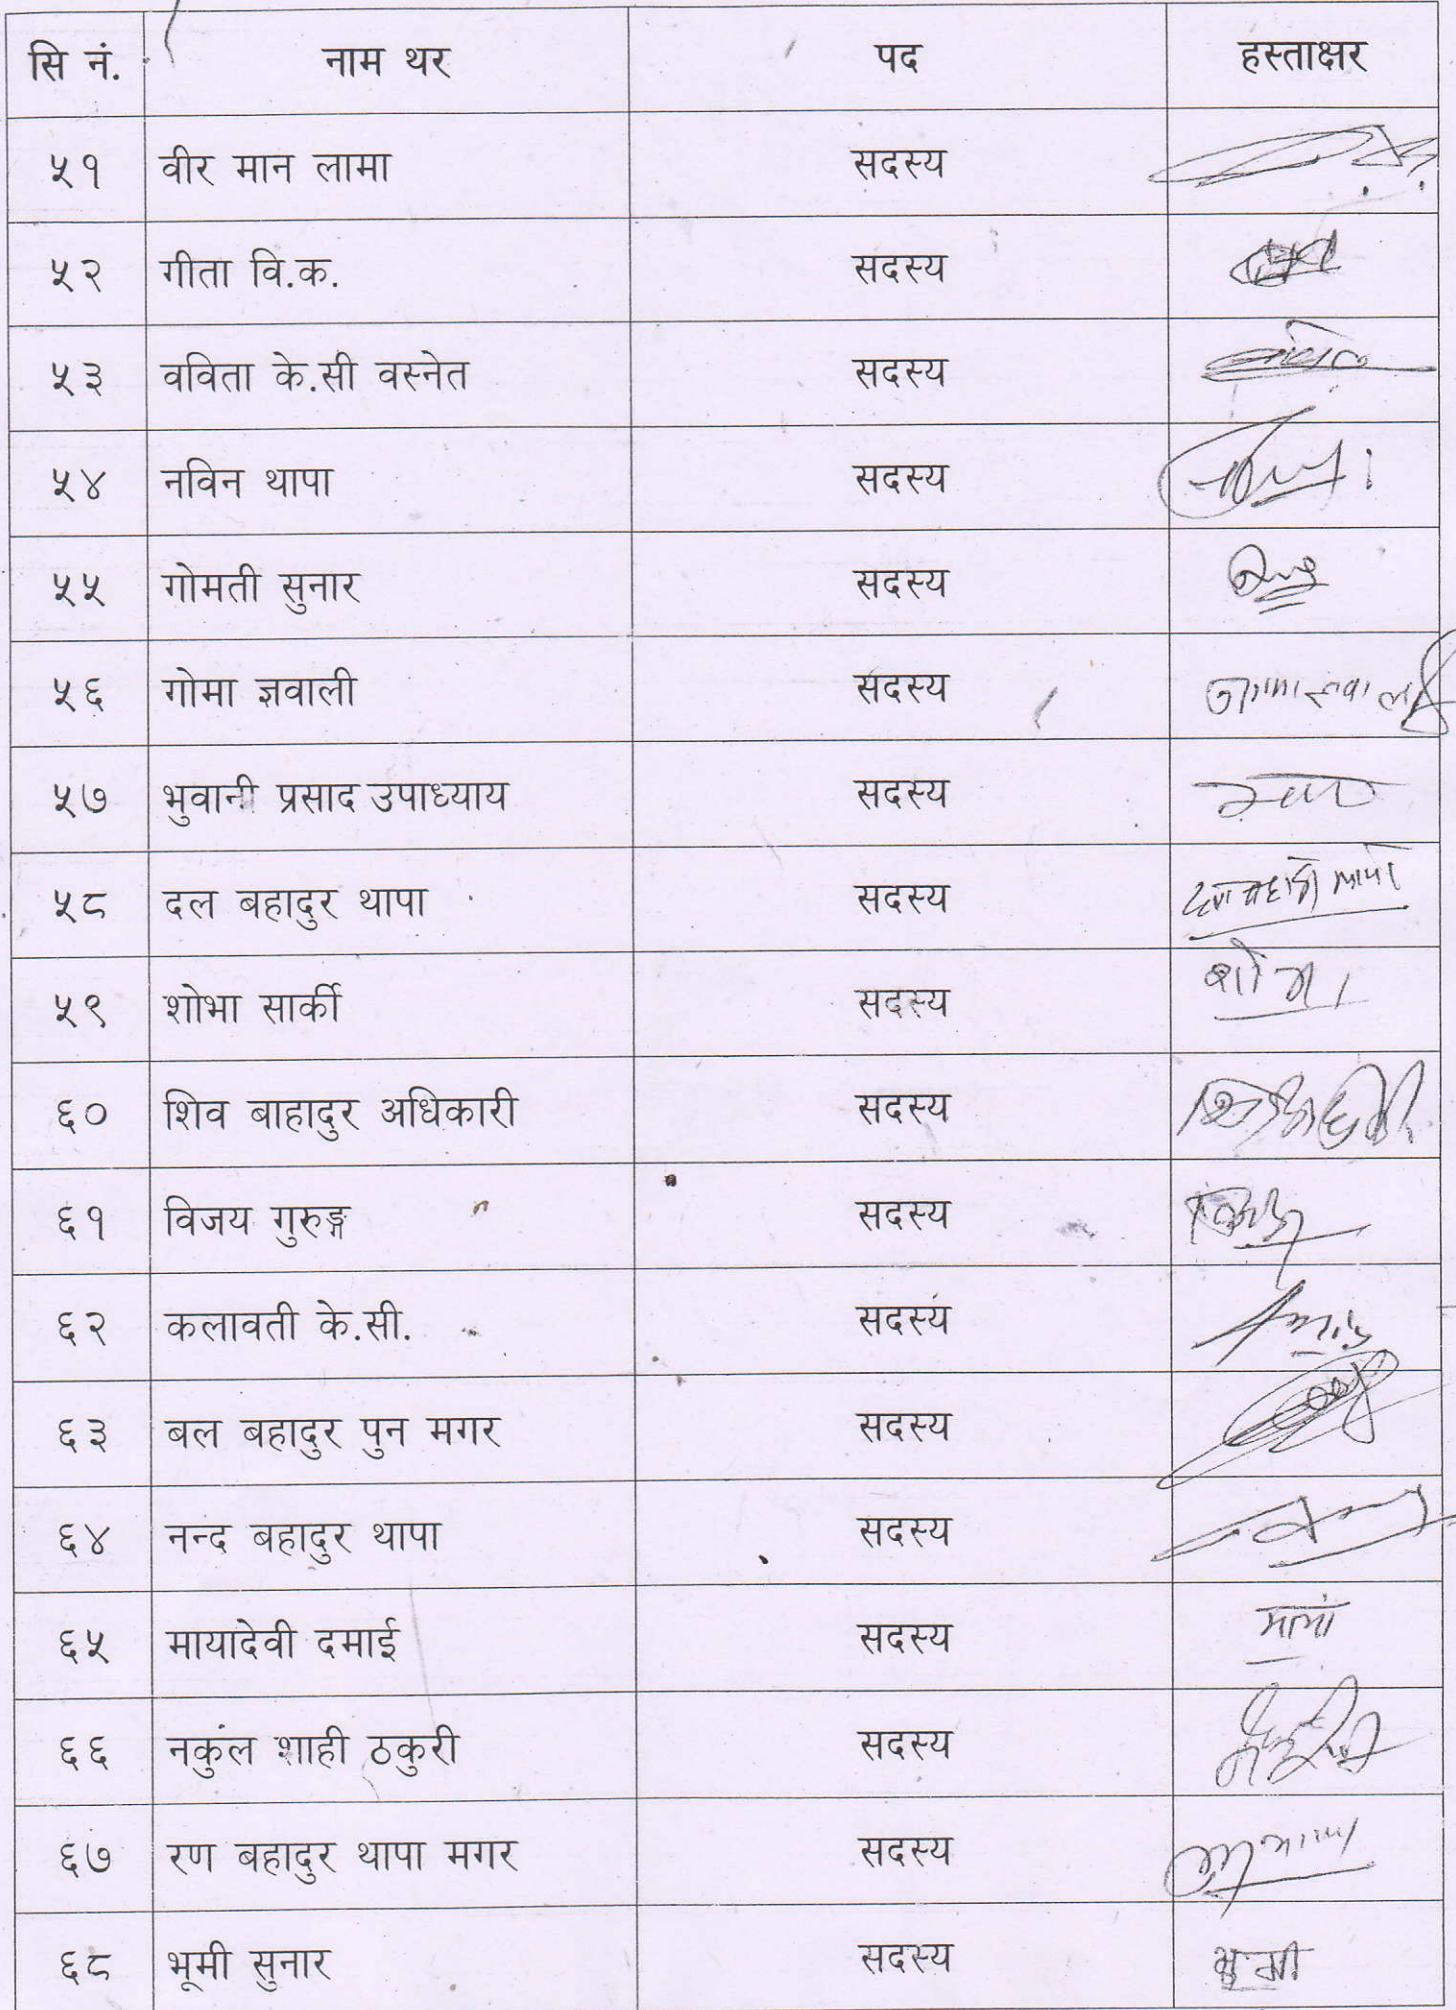 सि नं. नाम थर पद हस्ताक्षर
५१ वीर मान लामा सदस्य
५२ गीता वि.क. सदस्य
५३ वविता के.सी वस्नेत सदस्य
५४ नविन थापा सदस्य
५५ गोमती सुनार सदस्य
५६ गोमा ज्ञवाली सदस्य
५७ भुवानी प्रसाद उपाध्याय सदस्य
५८ दल बहादुर थापा सदस्य
५९ शोभा सार्की सदस्य शोभा
६० शिव बाहादुर अधिकारी सदस्य
६१ विजय गुरुङ्ग सदस्य
६२ कलावती के.सी. सदस्य
६३ बल बहादुर पुन मगर सदस्य
६४ नन्द बहादुर थापा सदस्य
६५ मायादेवी दमाई सदस्य
६६ नकुल शाही ठकुरी सदस्य
६७ रण बहादुर थापा मगर सदस्य
६८ भूमी सुनार सदस्य भुमी